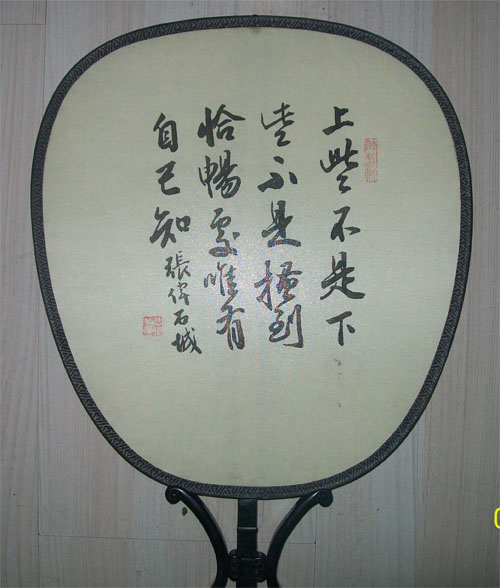 上些不是下
些不是搔到
恰暢處唯有
自己知
張 石城